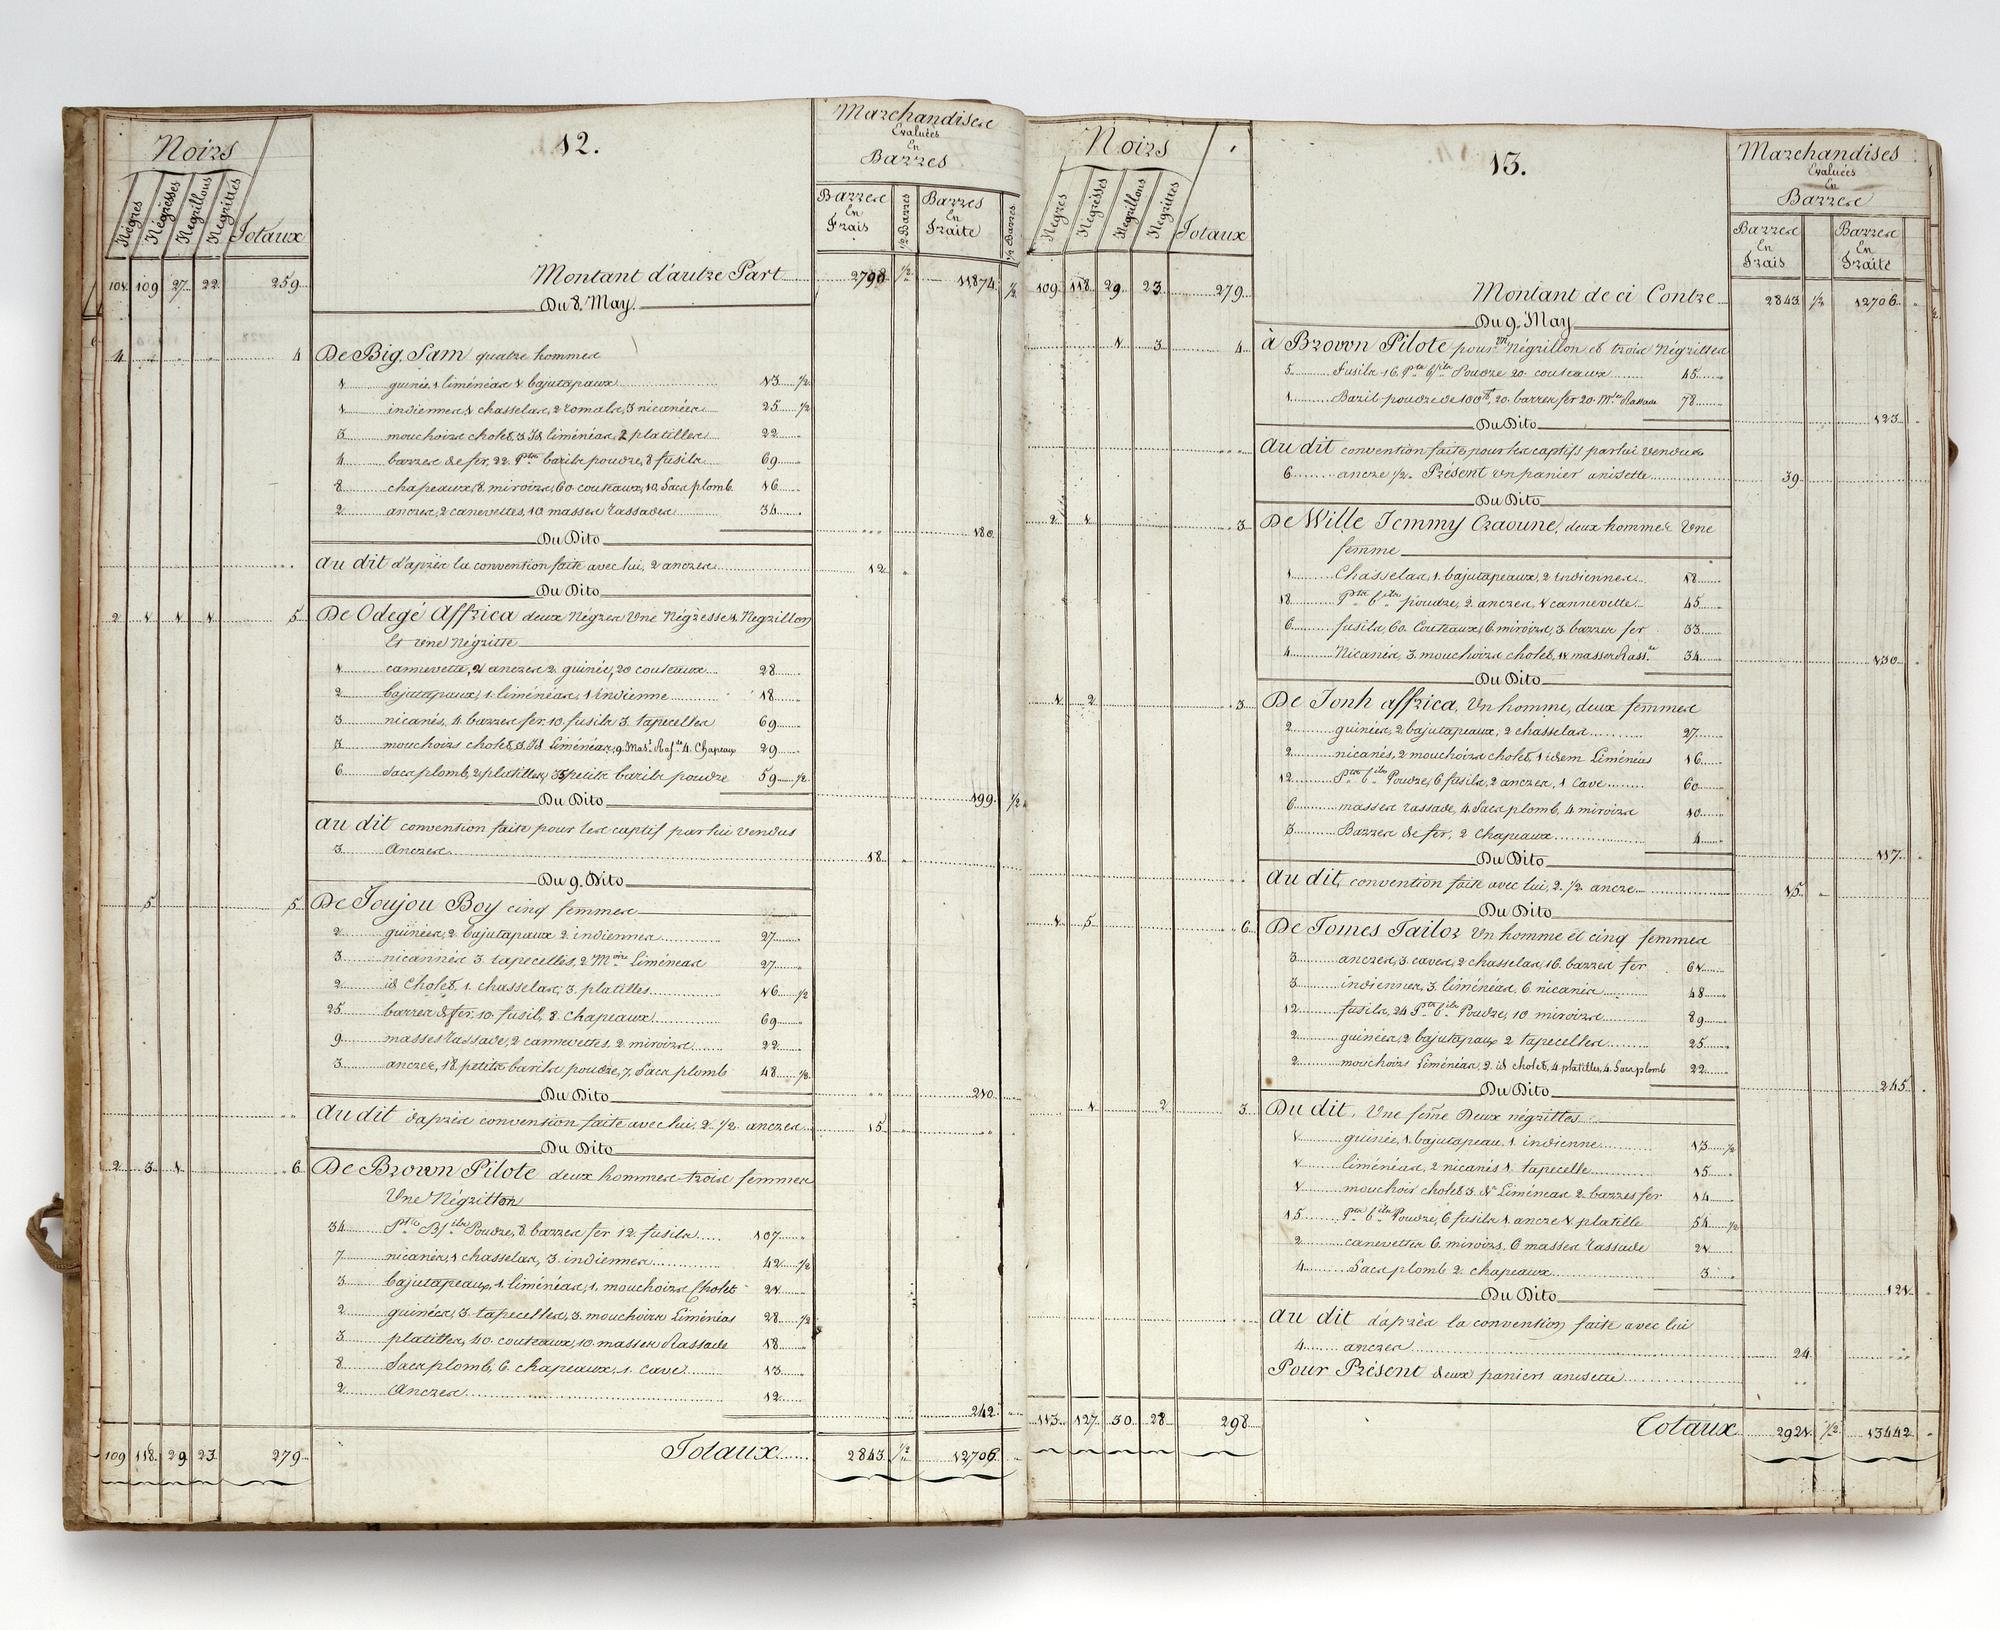 Noirs
12.
Marchandises
Evaluées
En
Barres
Négres
Négresses
Negrillons
Negrittes
Totaux
Barres
En
Frais
1/2 Barres
Barres
En
Traite
1/2 Barres
104 109 27 22 259 Montant d'autre Part 2798 1/2 11874 1/2
Du 8. May
4 4 De Big Sam quatre hommes
1 guinée, 1 liménéas 1 bajutapaux 13 1/2
1 indiennes, 1 chasselas, 2 romals, 3 nicanées 25 1/2
3 mouchoirs cholet, 3 Id liménéas, 2 platilles 22
4 barres de fer, 22 Pts barils poudre, 8 fusils 69
8 chapeaux, 8 miroirs, 60 couteaux, 10 Sacs plomb 16
2 ancres, 2 canevettes, 10 masses rassades 34
180
Du Dito
au dit d'après la convention faite avec lui, 2 ancres 12
Du Dito
2 1 1 1 5 De Odegé Affrica deux Négres Une Négresse 1 Negrillon
Et Une Négritte
1 cannevette, 2 ancres 2 guinée, 20 couteaux 28
2 bajutapaux, 1 liménéas, 1 indienne 18
3 nicanés, 4 barres fer, 10 fusils 3 tapecelles 69
3 mouchoirs cholet, 3 Id Liménéas, 9 Mas. Ras.de 4 Chapeaux 29
6 Sacs plomb, 2 platilles, 35 petits barils poudre 59 1/2
199 1/2
Du Dito
au dit convention faite pour les captifs par lui vendus
3 Ancres 18
Du 9. Dito
5 5 De Joujou Boy cinq femmes
2 guinées, 2 bajutapaux 2 indiennes 27
3 nicannés 3 tapecelles, 2 Moirs Liménéas 27
2 id Cholet, 1 chasselas, 3 platilles 16 1/2
25 barres de fer, 10 fusil, 8 chapeaux 69
9 masses rassade, 2 cannevettes, 2 miroirs 22
3 ancres, 18 petits barils poudre, 7 Sacs plomb 48 1/2
210
Du Dito
au dit d'après convention faite avec lui, 2 1/2 ancres 15
Du Dito
2 3 1 6 De Brown Pilote deux hommes trois femmes
Une Négritton
34 Pts Bls Poudre, 8 barres fer 12 fusils 107
7 nicanés, 1 chasselas, 3 indiennes 42 1/2
3 bajutapeaux, 1 liménéas, 1 mouchoirs Cholet 21
2 guinées, 3 tapecelles, 3 mouchoirs Liménéas 28 1/2
3 platilles, 40 couteaux, 10 masses Rassade 18
8 Sacs plomb, 6 chapeaux, 1 cave 13
2 Ancres 12
242
109 118 29 23 279 Totaux 2843 1/2 12706
Noirs
13.
Marchandises
Evaluées
En
Barres
Négres
Négresses
Negrillons
Negrittes
Totaux
Barres
En
Frais
Barres
En
Traite
109 118 29 23 279 Montant de ci Contre 2843 1/2 12706
Du 9. May
1 3 4 à Brown Pilote pour un Négrillon et trois Négrittes
5 Fusils 16 Pts bls Poudre 20 couteaux 45
1 Baril poudre de 100 lb, 20 barres fer 20 Mses Rassade 78
123
Du Dito
Au dit convention faite pour les captifs par lui vendus
6 ancre 1/2. Présent un panier anisette 39
Du Dito
2 1 3 De Wille Jemmy Craoune, deux hommes Une
femme
1 Chasselas, 1 bajutapeaux, 2 indiennes 18
18 Pts bls poudre, 2 ancres, 1 cannevette 45
6 fusils, 60 Couteaux, 6 miroirs, 3 barres fer 33
4 Nicanés, 3 mouchoirs cholet, 11 masses Rass.de 34
130
Du Dito
1 2 3 De Jonh affrica, Un homme, deux femmes
2 guinées, 2 bajutapeaux, 2 chasselas 27
2 nicanés, 2 mouchoirs cholet, 1 idem Liménéas 16
12 Pts bls Poudre, 6 fusils, 2 ancres, 1 cave 60
6 masses rassade, 4 Sacs plomb, 4 miroirs 10
3 Barres de fer, 2 chapeaux 4
117
Du Dito
au dit, convention faite avec lui, 2 1/2 ancre 15
Du Dito
1 5 6 De Tomes Tailor Un homme et cinq femmes
3 ancres, 3 caves, 2 chasselas, 16 barres fer 61
3 indiennes, 3 liménéas, 6 nicanés 48
12 fusils, 24 Pts bls Poudre, 10 miroirs 89
2 guinées, 2 bajutapaux 2 tapecelles 25
2 mouchoirs Liménéas, 2 id cholet, 4 platilles, 4 Sacs plomb 22
245
Du Dito
1 2 3 Du dit, Une feme Deux négrittes
1 guinée, 1 bajutapeau, 1 indienne 13 1/2
1 liménéas, 2 nicanés 1 tapecelle 15
1 mouchoir cholet 3 do Liménéas 2 barres fer 14
15 Pts bls Poudre, 6 fusils 1 ancre 1 platille 54 1/2
2 canevettes 6 miroirs, 6 masses rassade 21
4 Sacs plomb 2 chapeaux 3
121
Du Dito
au dit d'après la convention faite avec lui
4 ancres 24
Pour Présent deux paniers anisette
113 127 30 28 298 Totaux 2921 1/2 13442